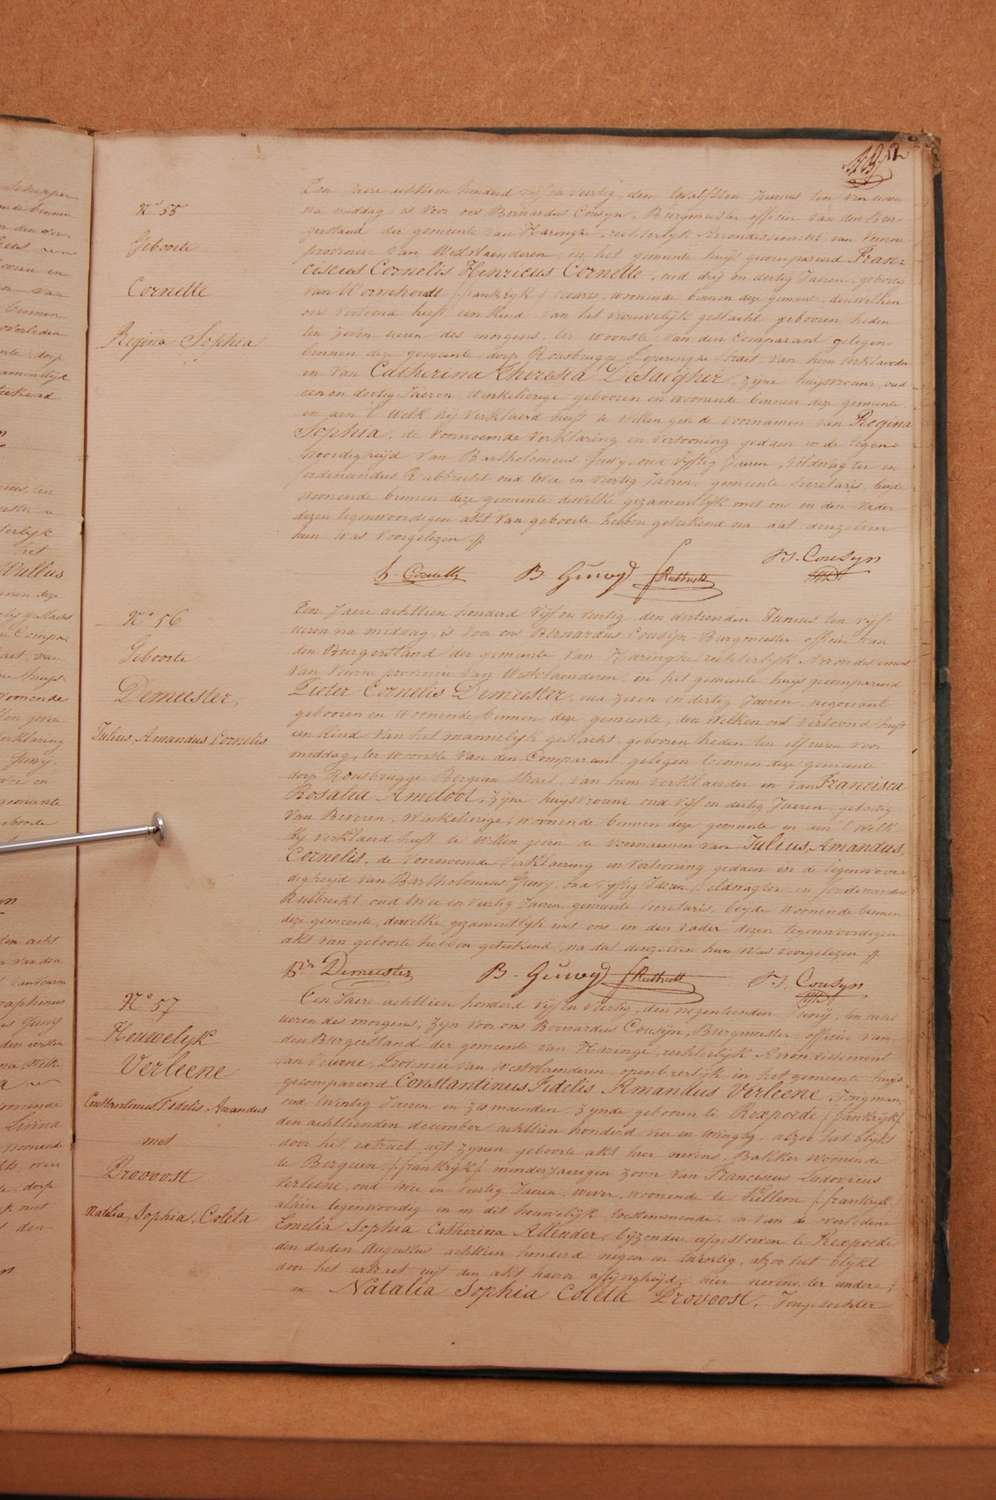 N° 55
Geboorte
Cornette
Regina Sophia
Een jaere achttien honderd vijf en veertig, den twaelfsten Junius ten vier uren
na middag is voor ons Bernardus Cousyn, Burgmeester officier van den bur-
gerstand der gemeente van Haringe, rechterlijk Arrondissement van Veurne
provincie van Westvlaenderen, in het gemeente huys gecompareerd Fran-
ciscus Cornelis Henricus Cornette, oud drij en dertig Jaeren, geboren
van Wormhoudt (frankrijk) woonende binnen deze gemeente, denwelken
ons vertoond heeft een kind van het vrouwelijk geslacht geboren heden
ten zeven uren des morgens, ter woonste van den Comparant gelegen
binnen deze gemeente dorp Rousbrugge straet van hem verklaerder
en van Catherina Theresia Desaegher, zyne huysvrouw, oud
een en dertig Jaeren Winkelierige geboren en woonende binnen deze gemeente
en aen 't welk hij verklaerd heeft te willen geven de voornamen van Regina
Sophia, de voornoemde verklaring en vertooning gedaen in de tegen-
woordigheijd van Bartholomeus Guwij oud vyftig Jaeren, veldwagter en
ferdinandus Rubbrecht oud twee en veertig Jaeren, gemeente secretaris, beyde
woonende binnen deze gemeente dewelke gezamentlyk met ons en den vader
dezen tegenwoordigen akt van geboorte hebben geteekend na dat denzelven
hun was voorgelezen
f. Cornette B. Guwy f Rubbrecht B. Cousyn
N° 56
Geboorte
Demeester,
Julius Amandus Cornelis
Een Jaere achttien honderd vijf en veertig, den dertienden Junius ten vyf
uren na middag, is voor ons Bernardus Cousijn Burgmeester officier van
den Burgerstand der gemeente van Haringhe rechterlijk Arrondissement
van Veurne provincie van Westvlaenderen, in het gemeente huys gecompareerd
Pieter Cornelis Demeester, oud zeven en dertig Jaeren, negociant
geboren en woonende binnen deze gemeente, den welken ons vertoond heeft
een kind van het mannelijk geslacht, geboren heden ten elf uren voor
middag, ter woonste van den Comparant gelegen binnen deze gemeente
dorp Rousbrugge Bergsche straet, van hem verklaerder en van Francisca
Rosalia Ameloot, zijne huysvrouw oud vijf en dertig Jaeren, geboortig
van Beveren, Winkelierige, woonende binnen deze gemeente en aen 't welk
hij verklaerd heeft te willen geven de voornamen van Julius Amandus
Cornelis, de voornoemde verklaering en vertooning gedaen in de tegenwoor-
digheijd van Bartholomeus Guwy, oud vyftig Jaeren veldwagter en ferdinandus
Rubbrecht oud twee en veertig Jaeren gemeente secretaris, beyde woonende binnen
deze gemeente, dewelke gezamentlyk met ons en den vader dezen tegenwoordigen
akt van geboorte hebben geteekend, na dat denzelven hun was voorgelezen
Demeester B. Guwy f Rubbrecht B. Cousyn
N° 57
Houwelijk
Verleene
Constantinus Fidelis Amandus
met
Provoost
Natalia, Sophia, Coleta
Een Jaere achttien honderd vijf en veertig, den negentienden Junij, ten
uren des morgens, zyn voor ons Bernardus Cousijn, Burgmeester officier van
den Burgerstand der gemeente van Haringe, rechterlijk Arrondissement
van Veurne, Provincie van Westvlaenderen openbaerlyk in het gemeente huys
gecompareerd Constantinus Fidelis Amandus Verleene, Jongman,
oud twintig Jaeren en zes maenden, zynde geboren te Rexpoede, (frankrijk)
den achttienden december achttien honderd vier en twintig, alzoo het blykt
door het extract uyt zynen geboorte akt hier nevens, Bakker woonende
te Berguen (frankrijk) minderjaerigen zoon van Franciscus Ludovicus
Verleene, oud en veertig Jaeren, wever, woonende te Killem (frankrijk
alhier tegenwoordig en in dit houwelijk toestemmende, en van de overledene
Amelia Sophia Catherina Alleuder, byzonder afgestorven te Rexpoede
den derden Augustus achttien honderd negen en twintig, alzoo het blykt
door het extract uyt den akt haerer aflyvigheijd, hier nevens, ter andere;
en Natalia Sophia Coleta Provoost, Jongedochter